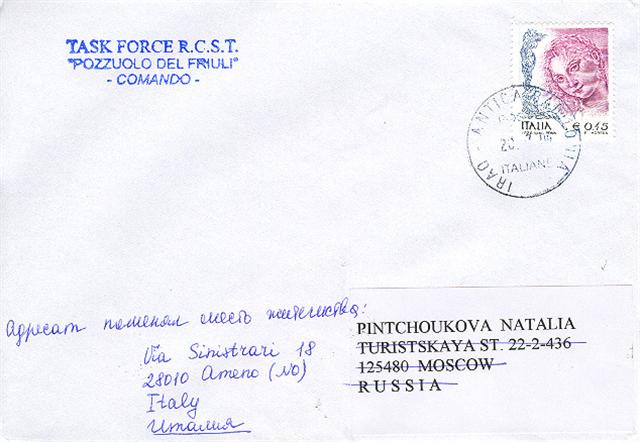 TASK FORCE R.C.S.T.
"POZZUOLO DEL FRIULI"
- COMANDO -
ITALIA
€ 0,45
IRAQ - ANTICA BABILONIA
ITALIANE
Адресат поменял место жительства:
Via Sinistrari 18
28010 Ameno (NO)
Italy
Италия
PINTCHOUKOVA NATALIA
TURISTSKAYA ST. 22-2-436
125480 MOSCOW
RUSSIA